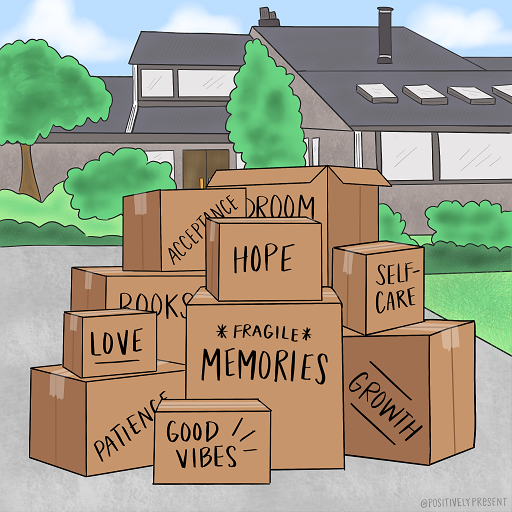 ACCEPTANCE
DROOM
HOPE
SELF-
CARE
BOOKS
LOVE
*FRAGILE*
MEMORIES
GROWTH
PATIENCE
GOOD
VIBES
@POSITIVELYPRESENT